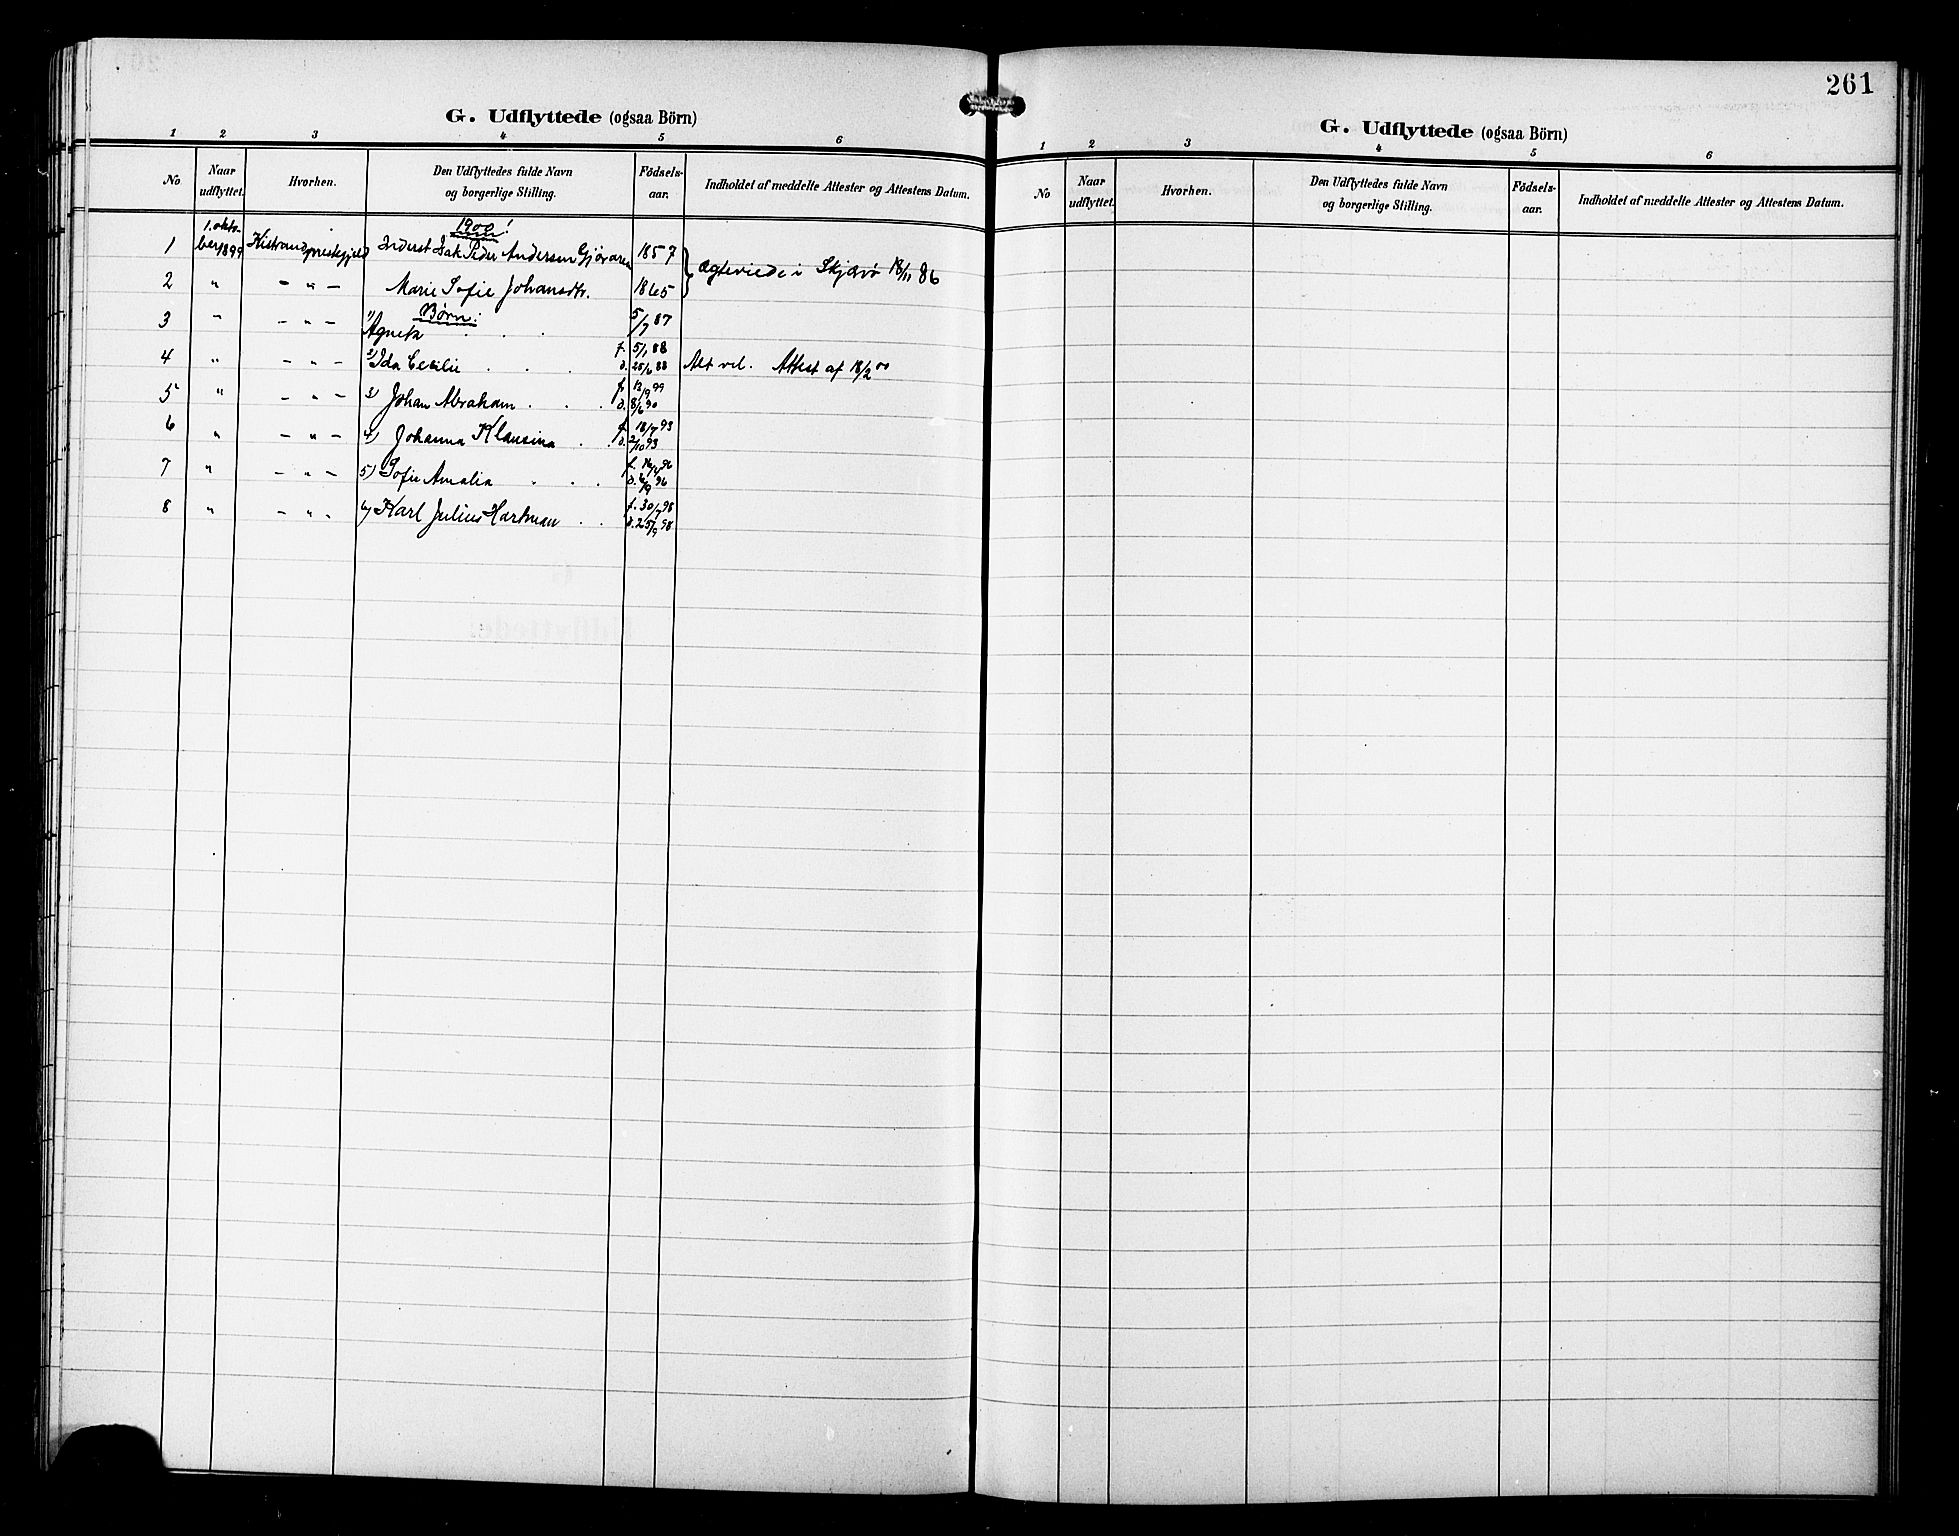 261
G. Udflyttede (ogsaa Börn)
1 2 3 4 5 6
No. Naar udflyttet. Hvorhen. Den Udflyttedes fulde Navn og borgerlige Stilling. Födsels-aar. Indholdet af meddelte Attester og Attestens Datum.
1900!
1 1. oktober 1899 Kistrand præstegjeld Inderst Isak Peder Andersen 1857
Ægteviede i Skjærvø 18/11 86
2 " - " - Marie Sofie Johansdtr. 1865
Børn:
3 " - " - 1) Agnete 5/7 87
4 " - " - 2) Ida Cecilie f. 5/1 88 d. 25/6 88 Alt vel. Attest af 18/2 00
5 " - " - 3) Johan Abraham f. 13/9 99 d. 8/6 90
6 " - " - 4) Johanna Klausina f. 18/7 93 d. 2/10 93
7 " - " - 5) Sofie Amalia f. 96 d. 96
8 " - " - 6) Karl Julius Hartman f. 30/7 98 d. 25/9 98
G. Udflyttede (ogsaa Börn)
1 2 3 4 5 6
No Naar udflyttet. Hvorhen. Den Udflyttedes fulde Navn og borgerlige Stilling. Födsels-aar. Indholdet af meddelte Attester og Attestens Datum.